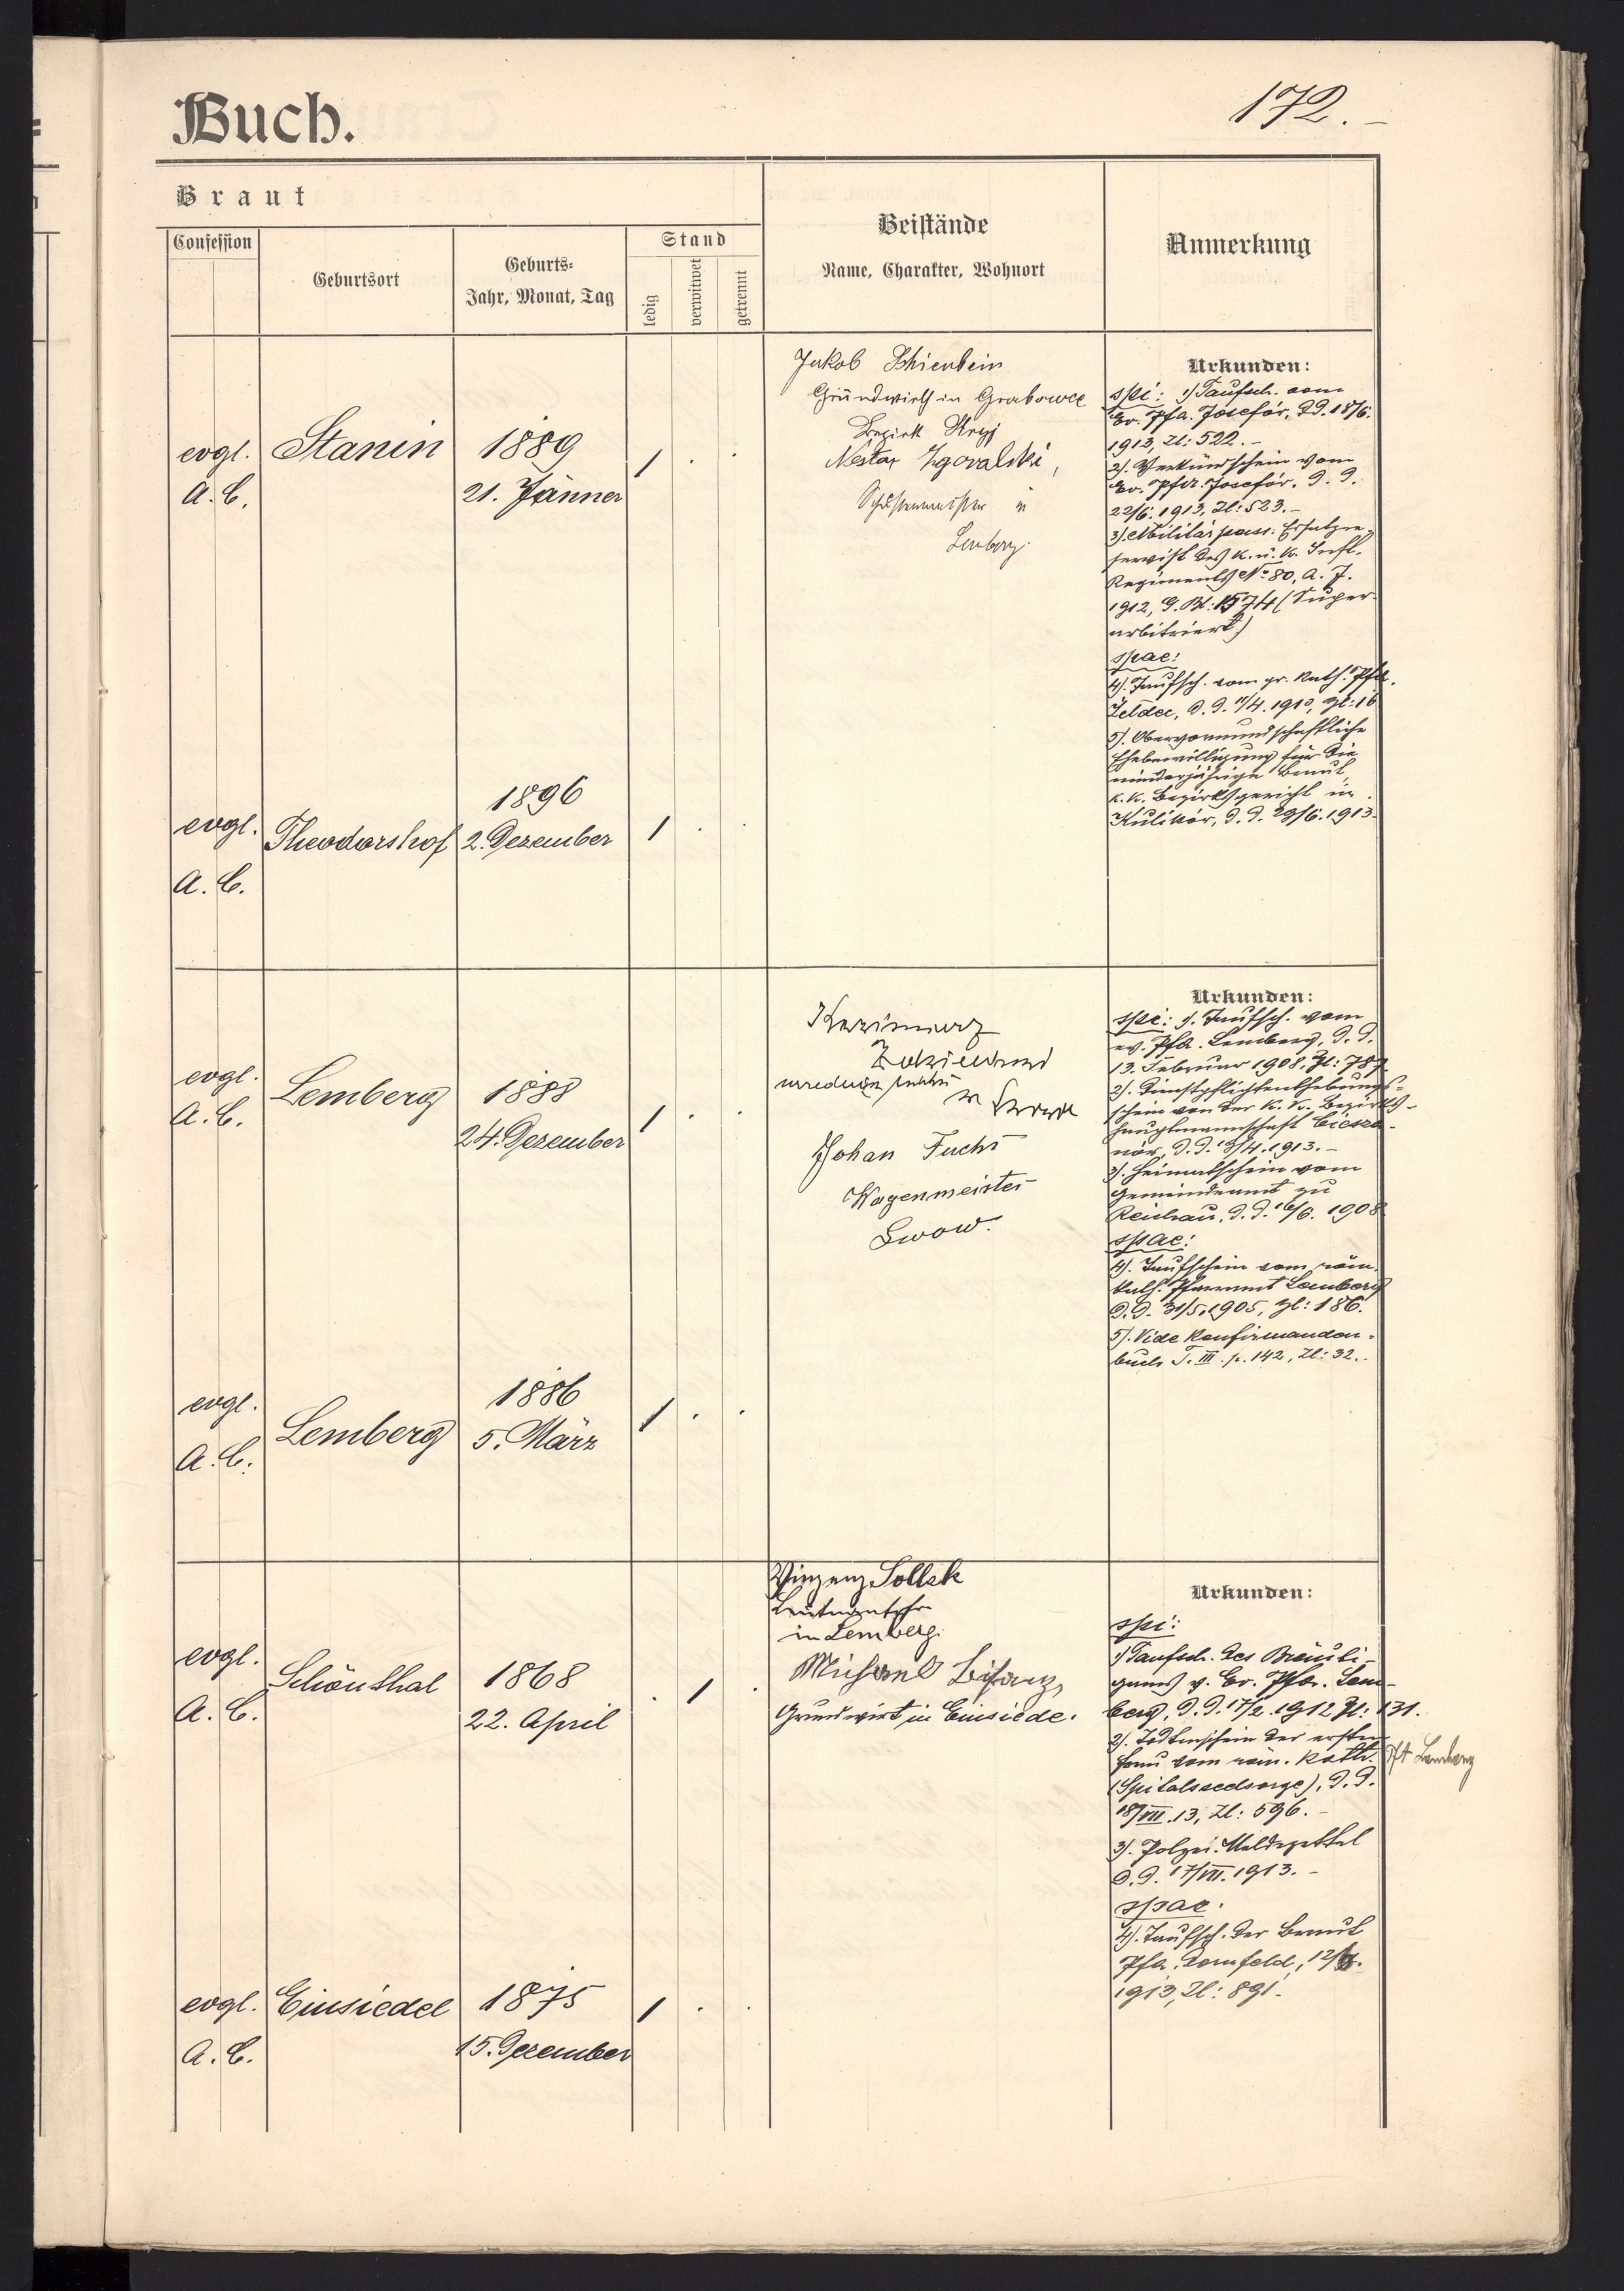 Buch.
172.
Braut
Confession
Geburtsort
Geburts-
Jahr, Monat, Tag
Stand
ledig
verwitwet
getrennt
Beistände
Name, Charakter, Wohnort
Anmerkung
evgl.
A. C.
Stanin
1889
21. Jänner
Jakob
Grundwirth in Grabowce
Bezirk Stryj
Nestor
Schustermeister in
Lemberg.
Urkunden:
spi: 1) Taufsch. vom
Ev. Pfa. Josefów, d.d. 18/6.
1913, Zl: 522.-
2). Verkündschein vom
Ev. Pfa. Josefów, d. d.
22/6. 1913, Zl: 523.-
3). Militärpass: Ersatzre-
servist des k. u. k. Inft.
Regiments No 80, A. J.
1912, G. Bl: 1574 (Super-
arbitriert)
spae:
4). Taufsch. vom gr. kath. Pfa.
Żeldec, d. d. 11/4. 1910, Zl: 16
5). Obervormundschaftliche
Ehebewilligung für die
minderjährige Braut,
k. k. Bezirksgericht in
Kulików, d. d. 29/6. 1913.
evgl.
A. C.
Theodorshof
1896
2. Dezember
evgl.
A. C.
Lemberg
1888
24. Dezember
Kazimierz
Johan Fuchs
Wagenmeister
Lwow.
Urkunden:
spi: 1. Taufsch. vom
ev. Pfa. Lemberg, d. d.
13. Februar 1908, Zl: 787.
2). Dienstpflichtenthebungs-
schein von der k. k. Bezirks-
hauptmannschaft Ciesza-
nów, d. d. 4. 1913.-
3). Heimatschein vom
Gemeindeamt zu
Reichau, d. d. 16/6. 1908
spae:
4). Taufschein vom röm.
kath. Pfarramt Lemberg
d. d. 31/5. 1905, Zl: 186.
5). Vide Konfirmanden-
buch T. III. p. 142, Zl: 32.
evgl.
A. C.
Lemberg
1886
5. März
evgl.
A. C.
Schönthal
1868
22. April
Vinzenz Sollak
in Lemberg.
Michael Bisanz,
Grundwirt in Einsiede.
Urkunden:
spi:
1) Taufsch. des Bräuti-
gams v. Ev. Pfa. Lem-
berg, d. d. 17/2. 1912 Zl: 131.
2). Todtenschein der ersten
Frau vom röm. kath. Pft Lemberg
(Spitalseelsorge), d. d.
18/VII. 13, Zl: 596.-
3). Polizei-Meldezettel
d. d. 17/VII. 1913.-
spae:
4). Taufsch. der Braut
Pfa. Dornfeld,
1913, Zl: 891.
evgl.
A. C.
Einsiedel
1875
15. Dezember